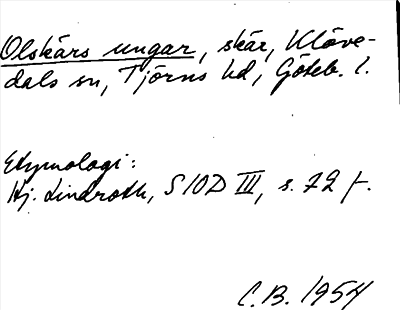 Olskärs ungar, skär, Klöve-
dals sn, Tjörns hd, Göteb. l.
Etymologi:
Hj. Lindroth, SIOD III, s. 72 f.
C.B. 1954